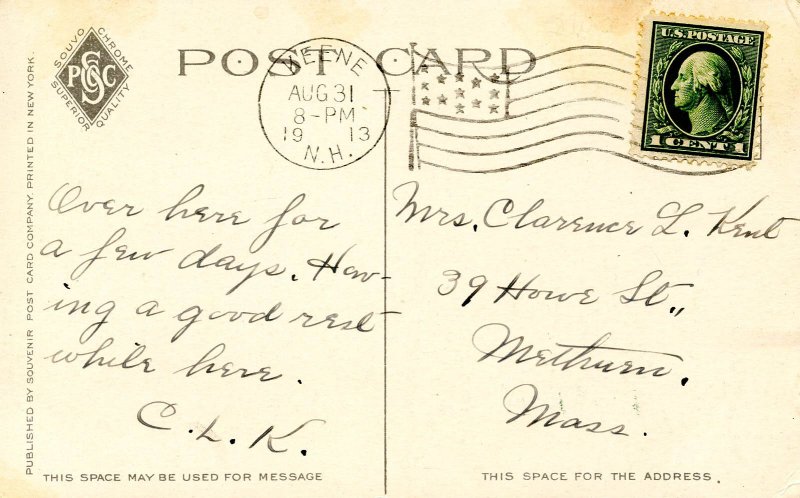 POST CARD
SOUVO CHROME
SUPERIOR QUALITY
SPCC
PUBLISHED BY SOUVENIR POST CARD COMPANY. PRINTED IN NEW YORK.
KEENE
AUG 31
8-PM
19 13
N.H.
U.S. POSTAGE
1 CENT 1
Over here for
a few days. Hav-
ing a good rest
while here.
C. L. K.
Mrs. Clarence L. Kent
39 Howe St.,
Methuen,
Mass.
THIS SPACE MAY BE USED FOR MESSAGE
THIS SPACE FOR THE ADDRESS.